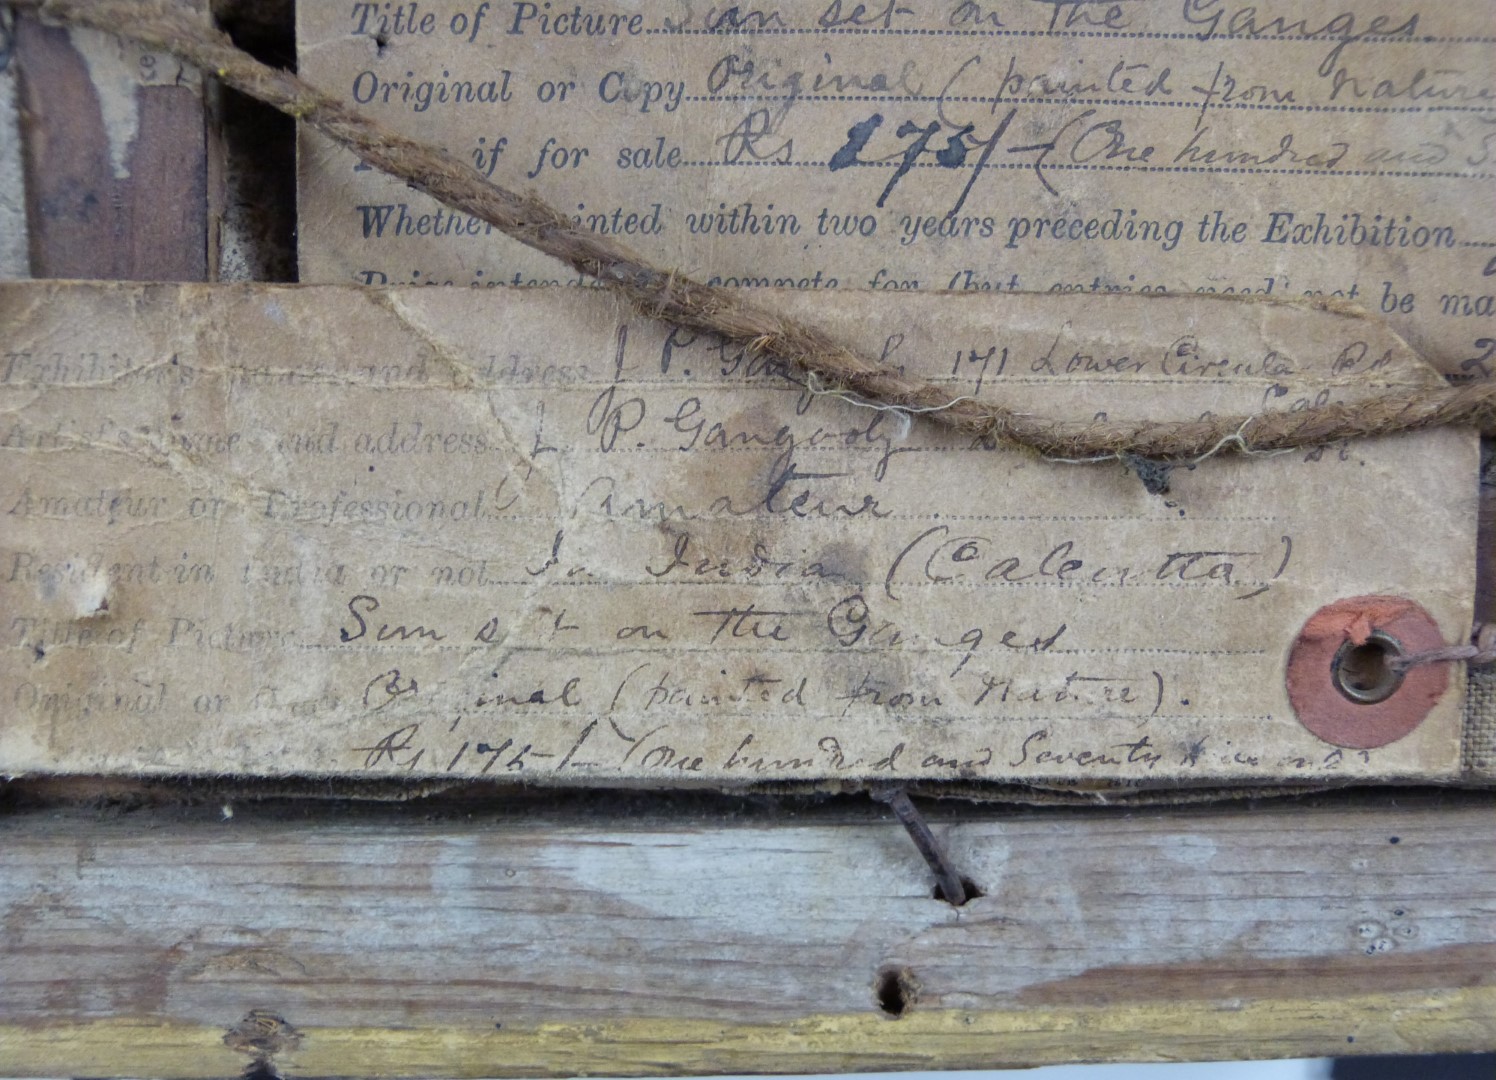 Title of Picture Sun set on The Ganges.
Original or Copy Original (painted from Nature
if for sale Rs 175/- (One hundred and S
Whether painted within two years preceding the Exhibition
Prize intended compete for (but entries need not be ma
Exhibitor's name and address J. P. Gangooly 171 Lower Circular Rd
Artist's Name and address J. P. Gangooly
Amateur or Professional Amateur
Resident in India or not In India (Calcutta)
Title of Picture Sun set on The Ganges
Original or Copy Original (painted from Nature).
Rs 175/- (One hundred and Seventy five only